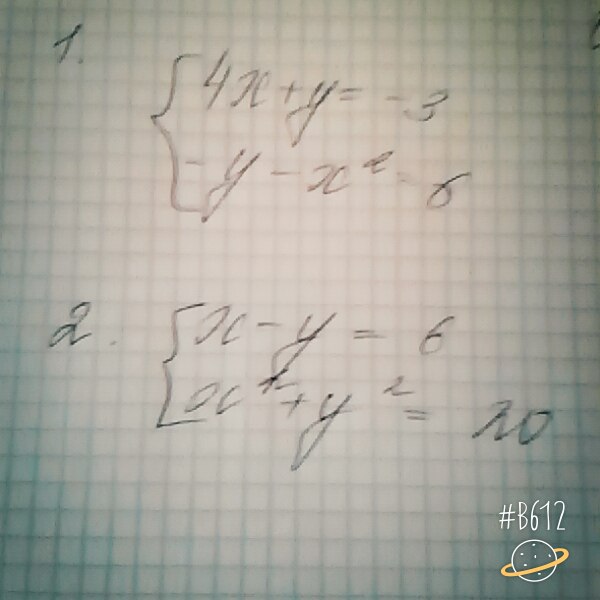 1.
4x+y=-3
-y-x²=6
2.
x-y=6
x²+y²=20
#B612